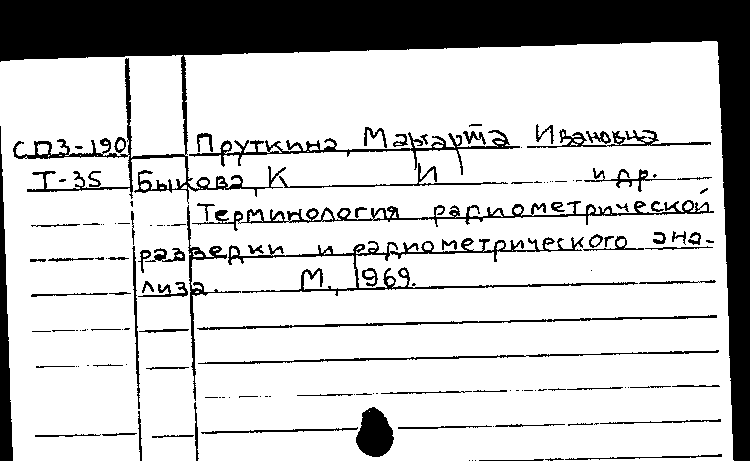 СПЗ-190 Пруткина, Маргарта Ивановна
Т-35 Быкова, К И и др.
Терминология радиометрической
разведки и радиометрического ана-
лиза. М., 1969.